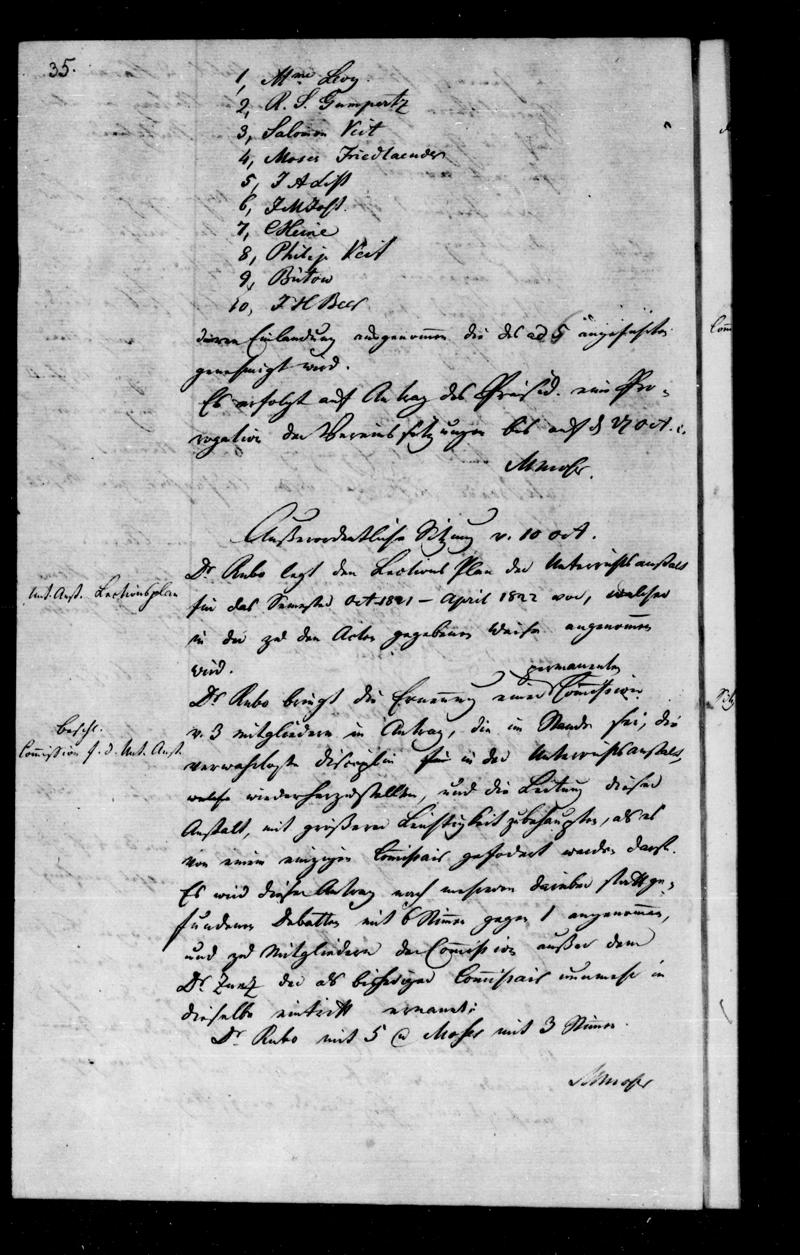 35.
1, Mme Levy
2, R. S. Gumpertz
3, Salomon Veit
4, Moses Friedlaender
5, J A List
6, J M Jost.
7, Heine
8, Philip Veit
9, Bütow
10, J H Beer
deren Einladung ausgenommen die des ad 5 angeführten
genehmigt wird.
Es erfolgt auf Antrag des Präsid. eine Pro-
rogation der Vereinssitzungen bis auf d 27 Oct. c.
M Moser.
Außerordentliche Sitzung v. 10 Oct.
Unt. Anst. Lectionsplan
Dr Rubo legt den Lections Plan der Unterrichtsanstalt
für das Semester Oct 1821 – April 1822 vor, welcher
in der zu den Acten gegebenen Weise angenommen
wird.
permanenten
Dr Rubo bringt die Ernennung einer Commission
Beschl.
Commission f. d. Unt. Anst.
v. 3 Mitgliedern in Antrag, die im Stande sei, die
verwahrloste Disciplin in der Unterrichtsanstalt
wiederherzustellen, und die Leitung dieser
Anstalt, mit größerer Leichtigkeit zu behaupten, als es
von einem einzigen Commissair gefordert werden darf.
Es wird dieser Antrag nach mehreren darüber stattge-
fundenen Debatten mit 6 Stimmen gegen 1 angenommen,
und zu Mitgliedern der Commission außer dem
Dr Zunz der als bisheriger Commissair nunmehr in
dieselbe eintritt ernannt:
Dr Rubo mit 5 u Moser mit 3 Stimmen.
M Moser